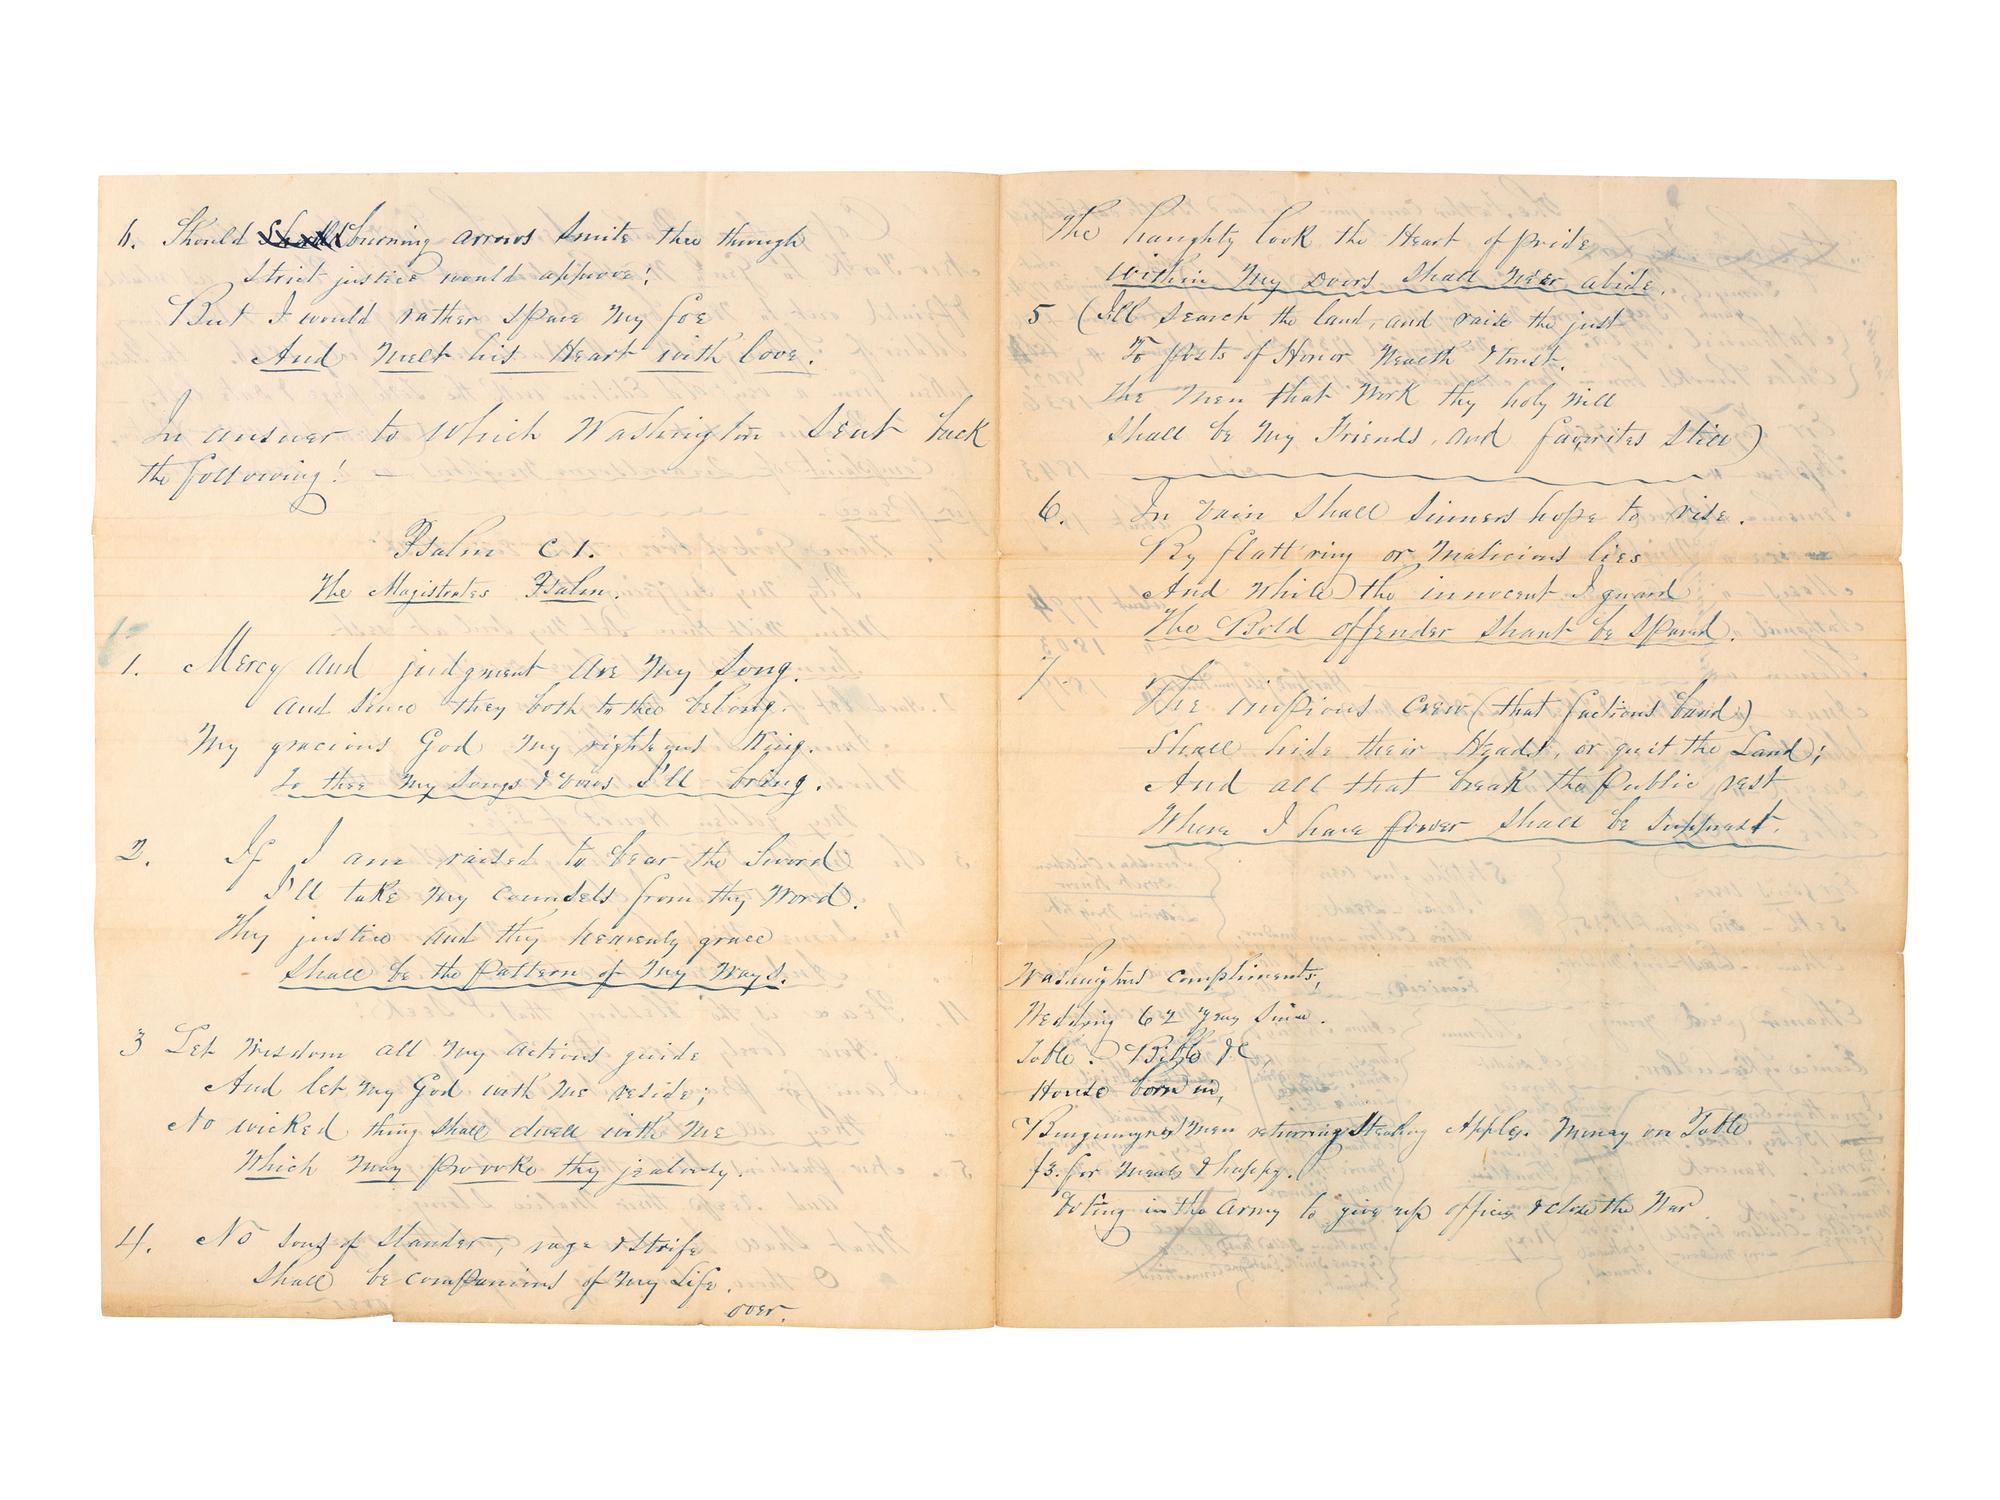 6. Should burning arrows smite thee through
Strict justice would approve!
But I would rather spare my foe
And melt his Heart with love.
In answer to which Washington Sent back
the following! —
Psalm C1.
The Magistrates Psalm.
1. Mercy and judgment are my Song.
And since they both to thee belong.
My gracious God my righteous King.
To thee my songs & vows I'll bring.
2. If I am raised to bear the Sword
I'll take my counsels from thy Word.
Thy justice and thy heavenly grace
Shall be the pattern of my ways.
3 Let wisdom all my actions guide
And let my God with me reside;
No wicked thing shall dwell with me
Which may provoke thy jealousy.
4. No sons of Slander, rage & Strife
Shall be companions of my Life.
over.
The haughty look the Heart of pride
within my Doors shall neer abide.
5 (Ill search the land, and raise the just
To posts of Honor Wealth & trust.
The men that work thy holy will
Shall be my Friends and favorites still)
6. In vain shall sinners hope to rise.
By flatt'ring or malicious lies
And while the innocent I guard
The Bold offender shant be spared.
7- The impious crew (that factious band)
Shall hide their Heads, or quit the Land;
And all that break the public rest
Where I have power shall be supprest.
Washingtons compliments,
Wedding 62 years since.
Table. Bible &C,
House born in,
men returning Stealing Apples Money on Table
for meals & happy.
Voting in the Army to give up offices & close the War